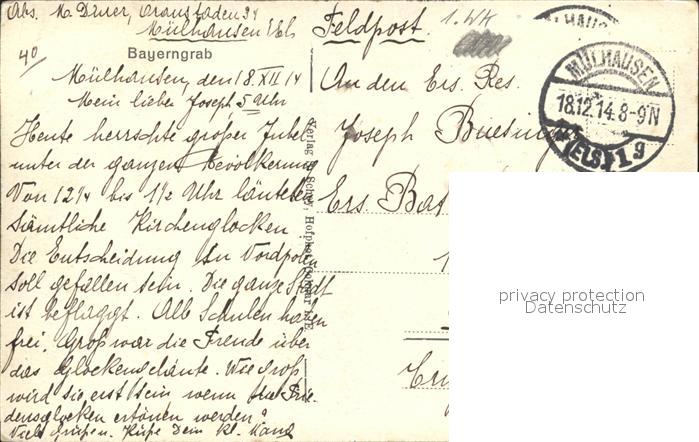 Abs. M. Dürer, Oranstaden 34
Mülhausen i/Els
Feldpost.
1. WK
40
Bayerngrab
Mülhausen, den 18. XII 14
Mein lieber Joseph 5 Uhr
Heute herrschte großer Jubel
unter der ganzen Bevölkerung
Von 12 1/4 bis 1 1/2 Uhr läuteten
sämtliche Kirchenglocken
Die Entscheidung in Nordpolen
soll gefallen sein. Die ganze Stadt
ist beflaggt. Alle Schulen haben
frei. Groß war die Freude über
das Glockengeläute. Wie groß
wird sie erst sein wenn die Frie-
densglocken ertönen werden?
Viele Grüßen. Küße Dein kl.
Verlag Hofphot. Colmar i/E.
An den Ers. Res.
Joseph
Ers. Bat
MÜLHAUSEN
18.12.14.8-9N
(ELS.) 1 g
privacy protection
Datenschutz